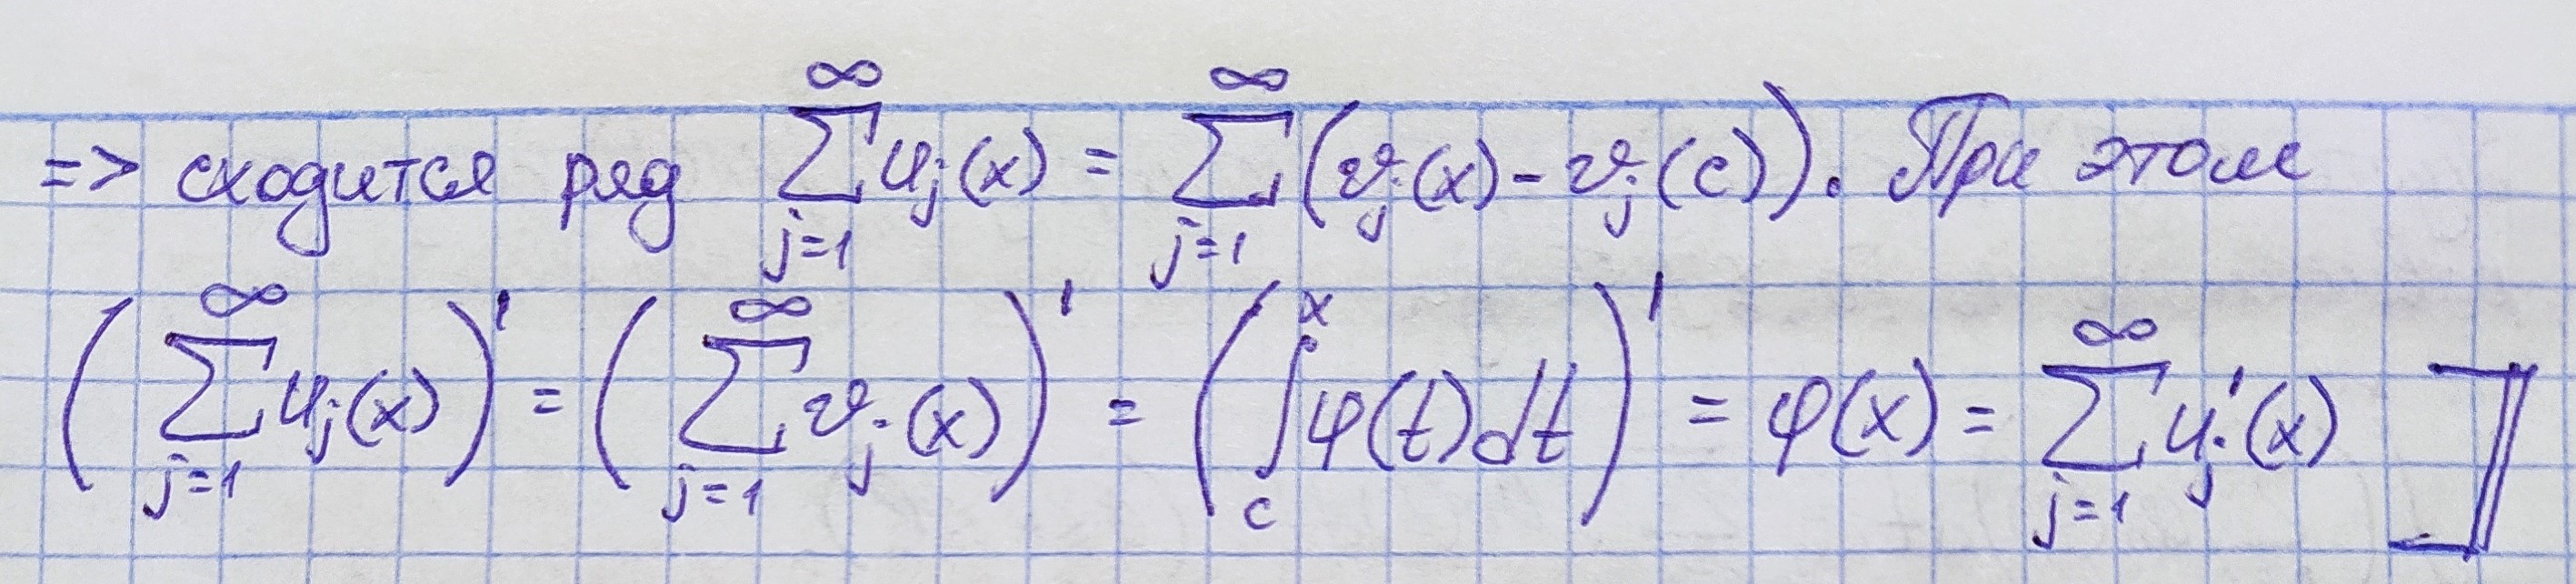 => сходится ряд $\sum_{j=1}^{\infty} u_j(x) = \sum_{j=1}^{\infty} (v_j(x) - v_j(c))$. При этом
$\left(\sum_{j=1}^{\infty} u_j(x)\right)' = \left(\sum_{j=1}^{\infty} v_j(x)\right)' = \left(\int_{c}^{x} \varphi(t) dt\right)' = \varphi(x) = \sum_{j=1}^{\infty} u_j'(x)$ ]